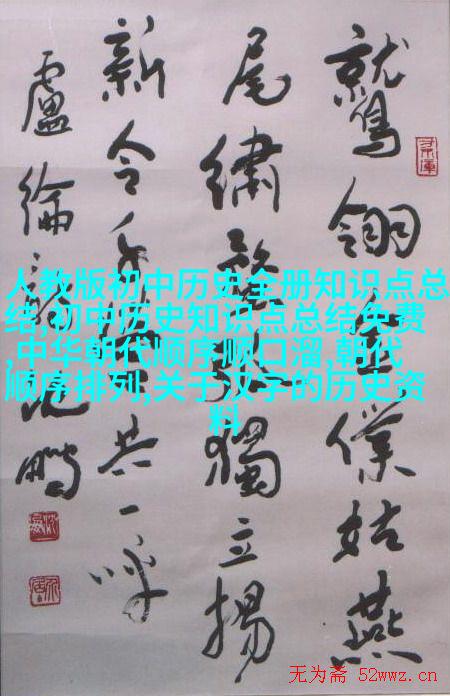 鷲翎金僕姑燕
尾繡蝥弧獨立揚
新令千營共一呼
盧綸詩沈鵬
人教版初中历史全册知识点总
结,初中历史知识点总结免费
,中华朝代顺序顺口溜,朝代
顺序排列,关于汉字的历史资
料
无为斋 52wwz.cn